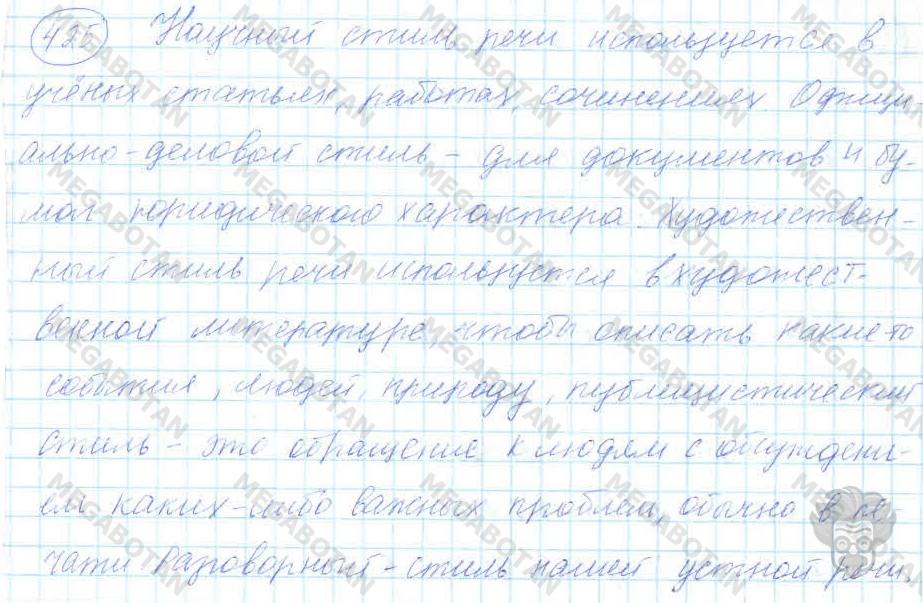 425 Научный стиль речи используется в
учёных статьях, работах, сочинениях Официи
ально-деловой стиль - для документов и бу-
маг юридического характера. Художествен-
ный стиль речи используется в художест-
венной литературе, чтобы описать какие то
события, людей, природу, публицистический
стиль - это обращение к людям с обсуждени-
ем каких-либо важных проблем, обычно в пе-
чати Разговорный - стиль нашей устной речи.
MEGABOTAN